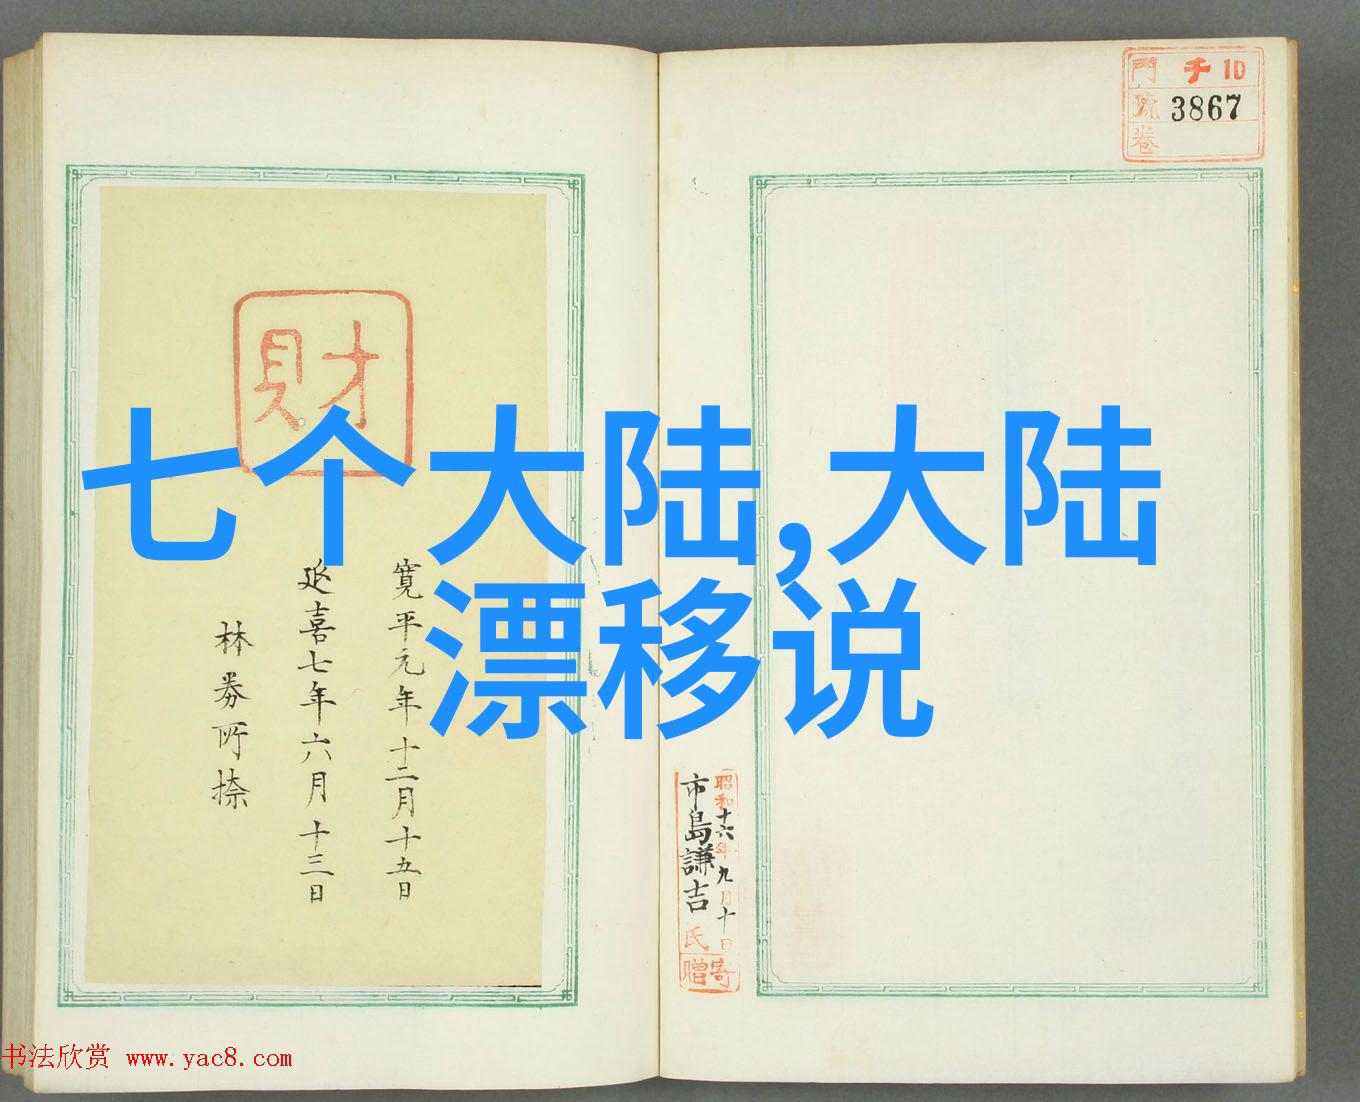 門 千10
號 3867
卷
財
寛平元年十二月十五日
延喜七年六月十三日
林券所捺
七个大陆,大陆
漂移说
昭和十六年九月十日
市島謙吉氏寄贈
书法欣赏 www.yac8.com